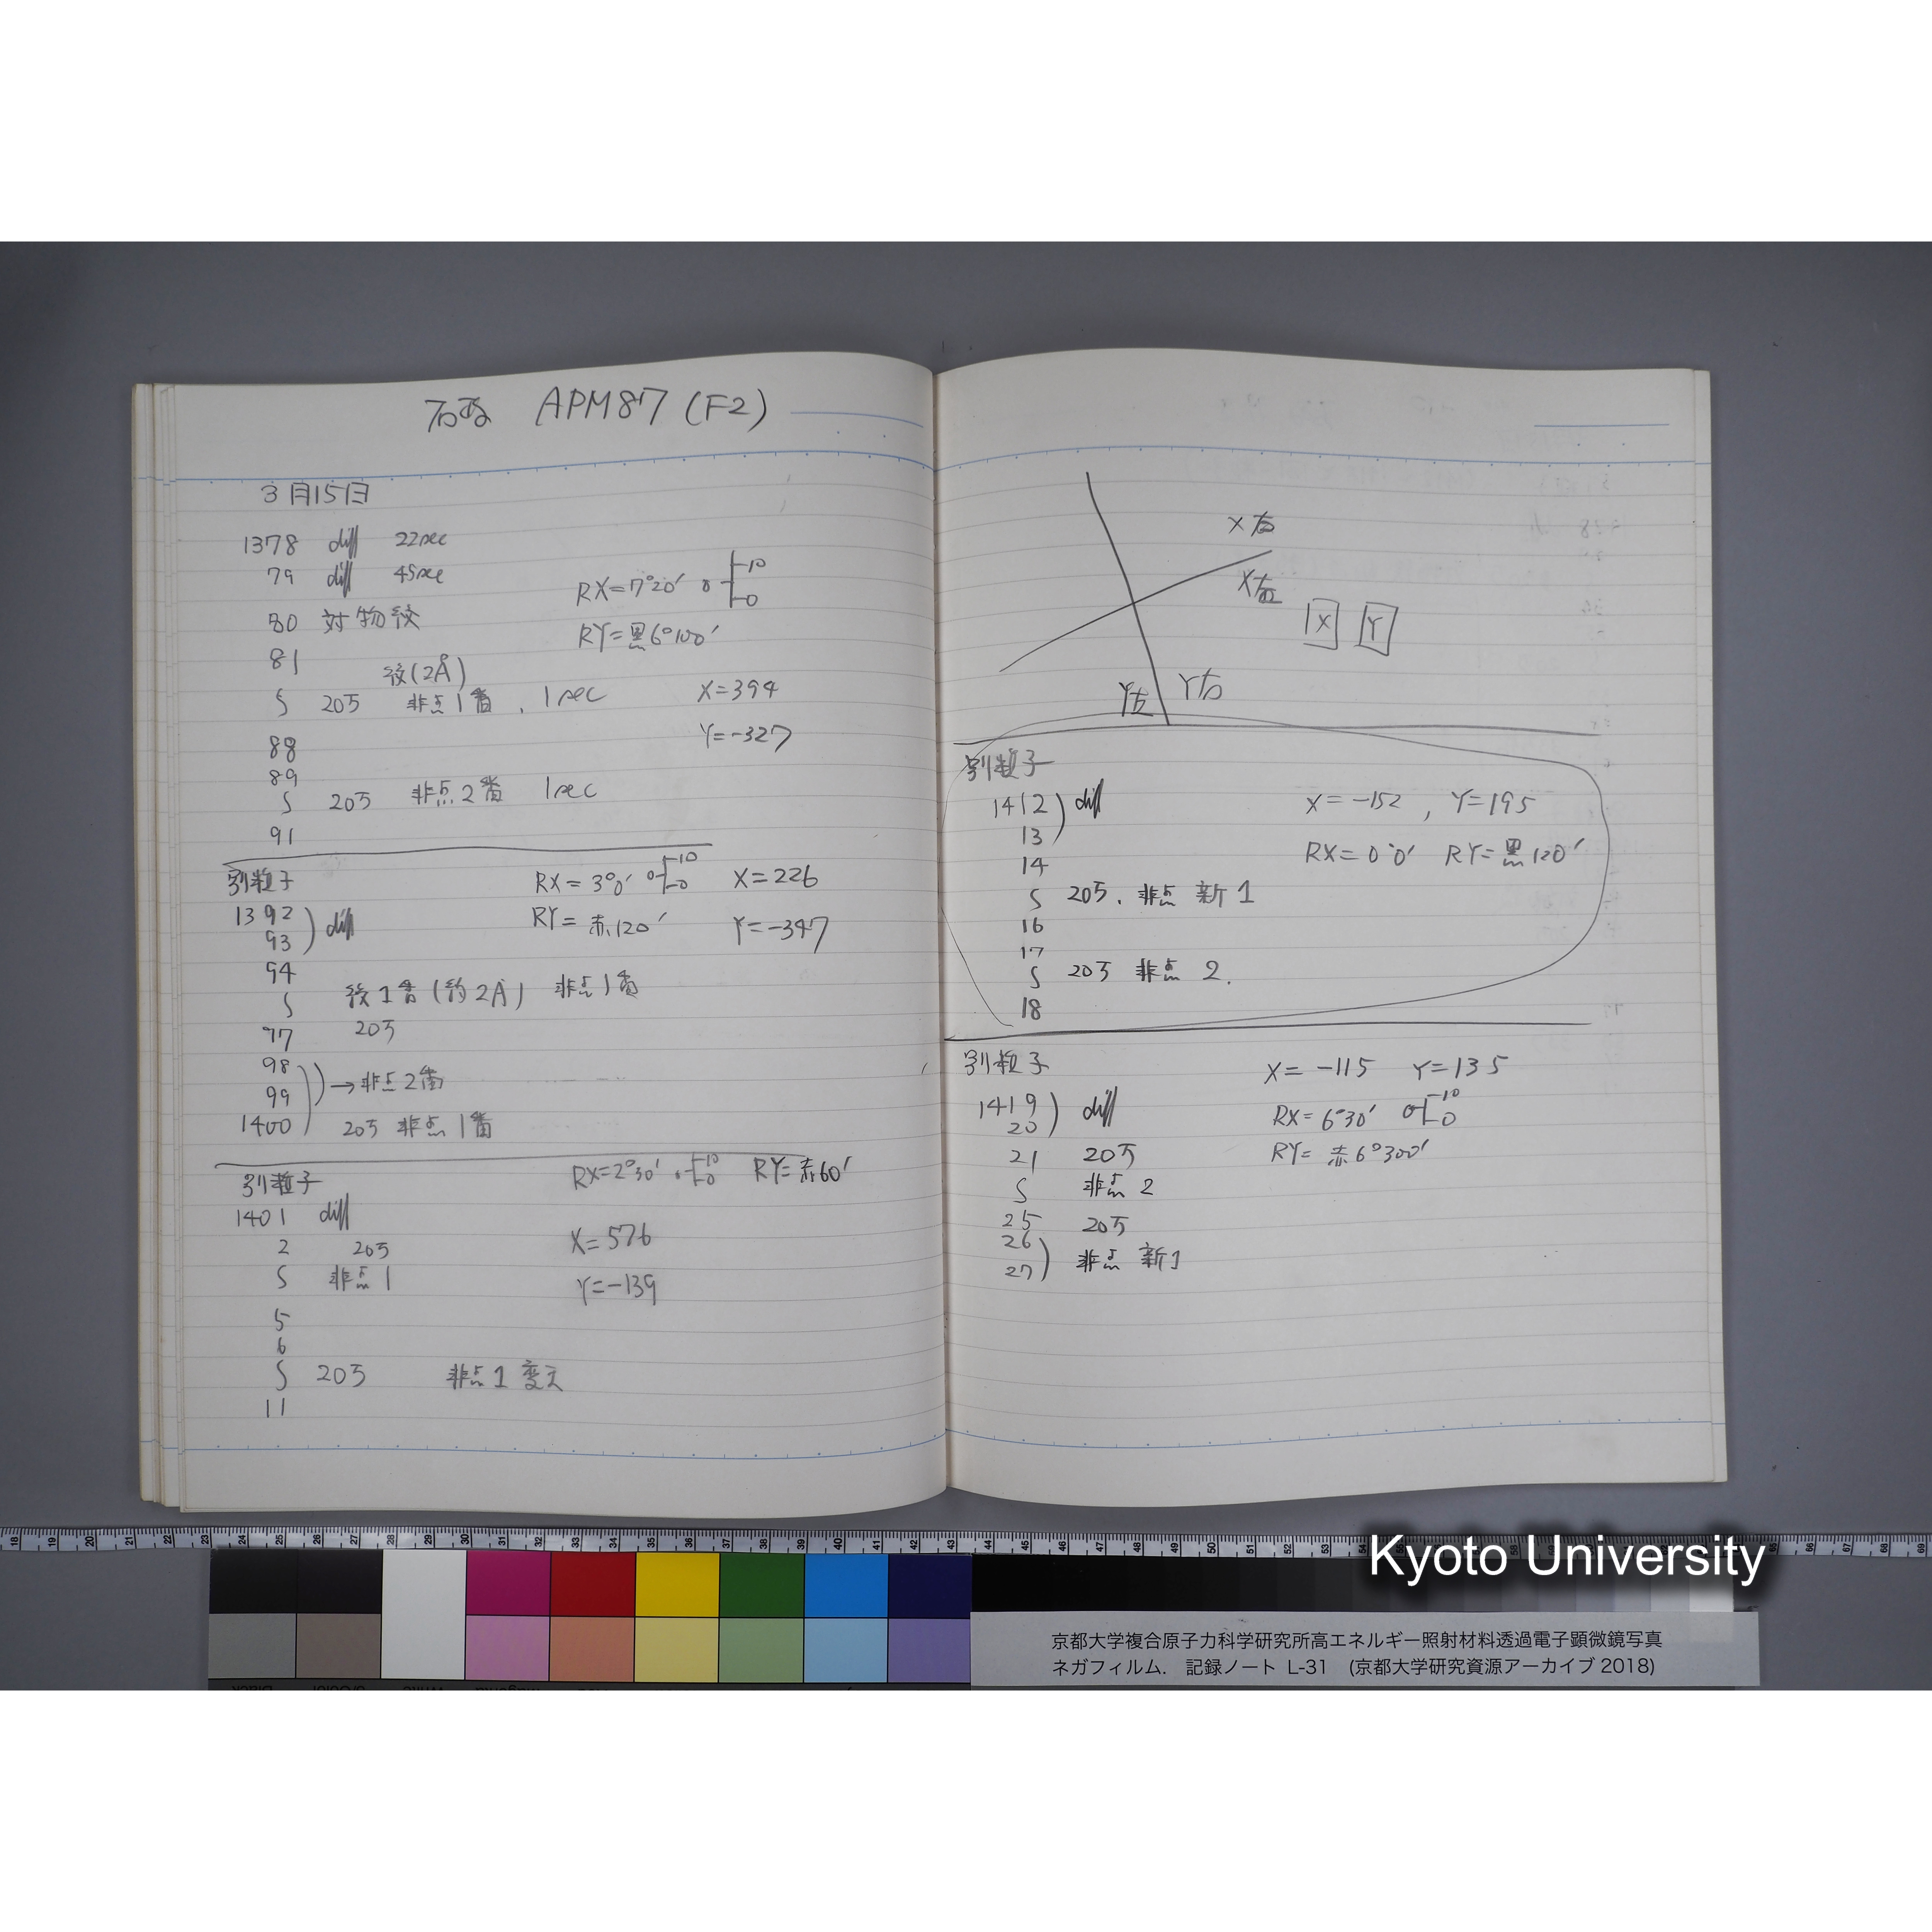 APM87 (F2)
3月15日
1378 diff 22sec
79 diff 45sec
RX=7°20′
10
0
80 対物絞
RY=黒6°100′
81
絞(2Å)
S 20万 非点1番. 1sec X=394
88 Y=-327
89
S 20万 非点2番 1sec
91
別粒子 RX=3°0′ 10 0 X=226
1392
93 ) diff RY=赤120′ Y=-347
94
S 絞1番(約2Å) 非点1番
77 20万
98
99 ) → 非点2番
1400 20万 非点1番
別粒子 RX=2°30′ 10 0 RY=赤60′
1401 diff
2 20万 X=576
S 非点1 Y=-139
5
6
S 20万 非点1
11
X右
X左
X Y
Y左 Y右
別粒子
1412
13 ) diff X=-152, Y=195
14 RX=0°0′ RY=黒120′
S 20万. 非点 新1
16
17
S 20万 非点 2.
18
別粒子 X=-115 Y=135
1419
20 ) diff RX=6°30′ 10 0
21 20万 RY=赤6°300′
S 非点2
25 20万
26
27 ) 非点 新1
18 19 20 21 22 23 24 25 26 27 28 29 30 31 32 33 34 35 36 37 38 39 40 41 42 43 44 45 46 47 48 49 50 51 52 53
Kyoto University
京都大学複合原子力科学研究所高エネルギー照射材料透過電子顕微鏡写真
ネガフィルム. 記録ノート L-31 (京都大学研究資源アーカイブ 2018)